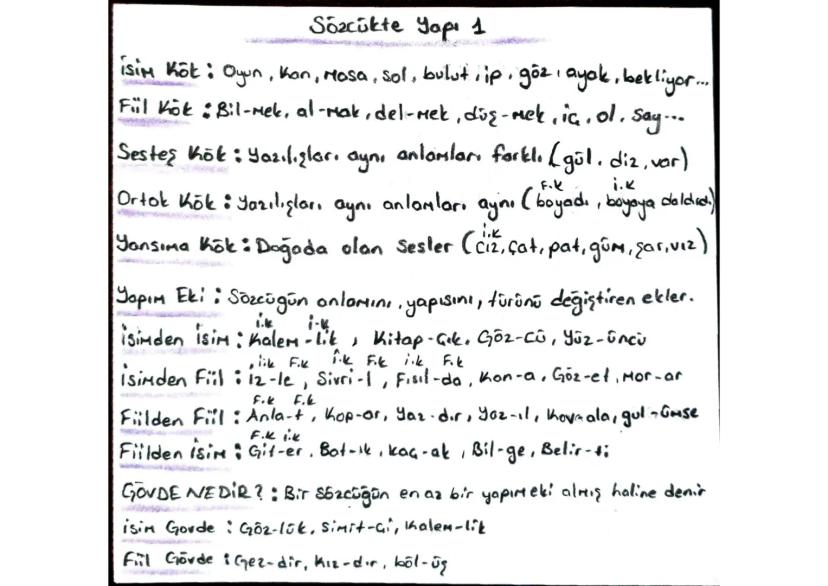 Sözcükte Yapı 1
İsim Kök : Oyun, Kan, Masa, sol, bulut, ip, göz, ayak, bekliyor...
Fiil Kök : Bil-mek, al-mak, del-mek, düş-mek, iç, ol, say...
Sesteş Kök : Yazılışları aynı anlamları farklı (gül, diz, var)
F.K i.K
Ortak Kök : Yazılışları aynı anlamları aynı (boyadı, boyaya daldırdı)
i.K
Yansıma Kök : Doğada olan Sesler (cız, çat, pat, güm, şar, vız)
Yapım Eki : Sözcüğün anlamını, yapısını, türünü değiştiren ekler.
i.k i-k
İsimden İsim : Kalem-lik, Kitap-çık, Göz-cü, Yüz-üncü
i.k F.k i.k F.k i.k F.k
İsimden Fiil : İz-le, Sivri-l, Fısıl-da, Kan-a, Göz-et, Mor-ar
F.k F.k
Fiilden Fiil : Anla-t, Kop-ar, Yaz-dır, Yaz-ıl, Kov-ala, gül-ümse
F.k i.k
Fiilden İsim : Gid-er, Bat-ık, kaç-ak, Bil-ge, Belir-ti
GÖVDE NEDİR? : Bir Sözcüğün en az bir yapım eki almış haline denir
isim Govde : Göz-lük, Simit-çi, Kalem-lik
Fiil Gövde : Gez-dir, Kız-dır, böl-üş